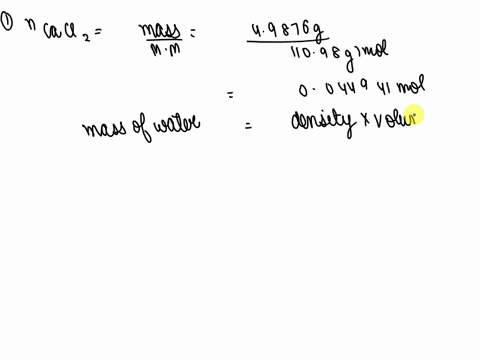 ① n CaCl2 = mass / M.M = 4.9876g / 110.98 g/mol
= 0.044941 mol
mass of water = density x volur